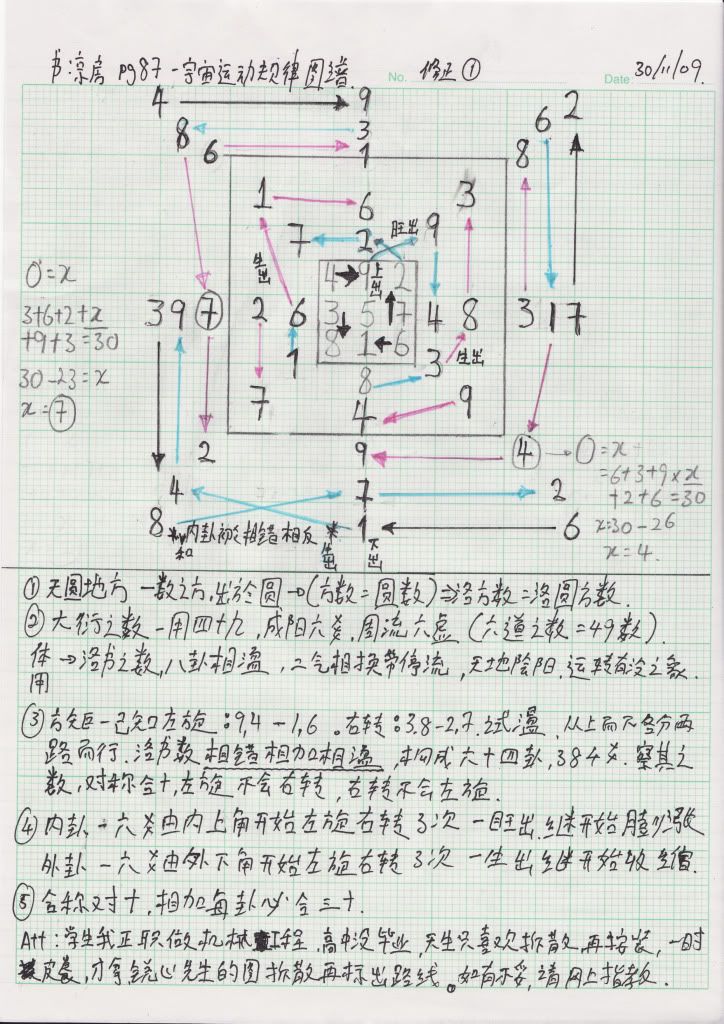 书:凉房 pg87 - 宇宙运动规律图谱. No. 修正① Date 30/11/09.
4 → 9
8 3
6 → 1
6 2
8
1 → 6 3
7 2 旺出 9
生出 4 9 2 上出
0 = x
3+6+2+x
+9+3=30
30-23=x
x=⑦
3 9 ⑦ 2 6 3 5 7 4 8 3 1 7
1 8 1 6 3 生出
8
7 4 9
2 9 ④ → 0 = x
=6+3+9+x
+2+6=30
x=30-26
x=4.
4 7 2
8 内卦初爻排错相反 生出 1 下出 6
① 天圆地方 - 数之方,出於圆 → (方数=圆数) ⇒ 洛方数=洛圆方数.
② 大衍之数 - 用四十九,成阳六爻,周流六虚 (六道之数=49数).
体用 → 洛书之数,八卦相盪,二气相换带停流,天地陰阳.运转有
③ 方矩 - 己知口左旋:9,4-1,6。右转:3.8-2,7.之式盪.从上而下各分两
路而行.洛书数相错相加相盪,构成六十四卦,384爻.察其之
数,对称合十,左旋不会右转,右转不会左旋.
④ 内卦 - 六爻由内上角开始左旋右转3次 - 旺出.继开始膨
外卦 - 六爻由外下角开始左旋右转3次 - 生出继开始收缩.
⑤ 合称对十,相加每卦必合三十.
Att:学生我正职做机械工程,高中没毕业,天生只喜欢拆散再按装,一时
皮养,才拿 心先生的图拆散再标出路线。如有不妥,请网上指教.